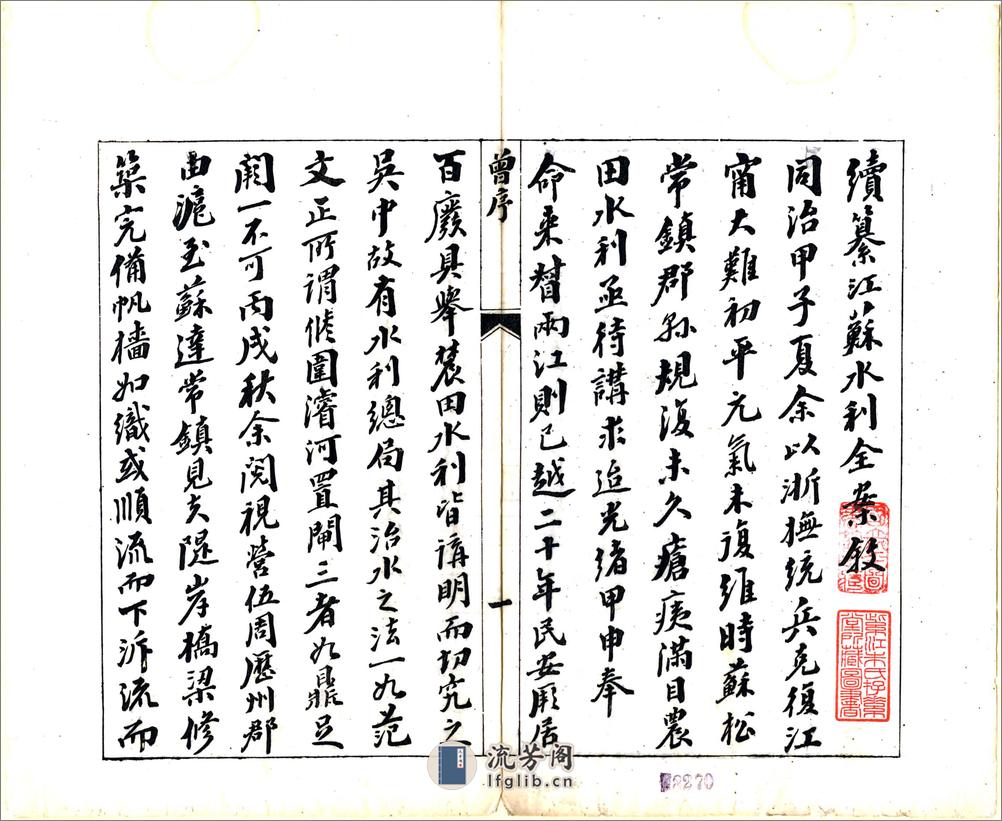 續纂江蘇水利全案敘
同治甲子夏余以浙撫統兵克復江
甯大難初平元氣未復維時蘇松
常鎮郡縣規復未久瘡痍滿目農
田水利亟待講求迨光緒甲申奉
命來督兩江則已越二十年民安厥居
曾序
一
百廢具舉農田水利皆講明而切究之
吳中故有水利總局其治水之法一如范
文正所謂修圍濬河置閘三者如鼎足
闕一不可丙戌秋余閱視營伍周歷州郡
由滬至蘇達常鎮見夫隄岸橋梁修
築完備帆檣如織或順流而下泝流而
流芳阁
lfglib.cn
2270